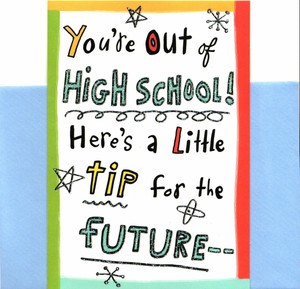 You're Out of
HIGH SCHOOL!
Here's a Little
tip for the
FUTURE--